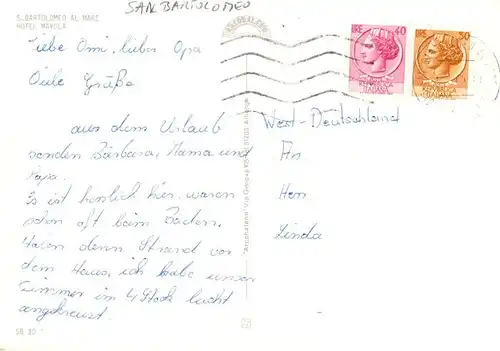 SAN BARTOLOMEO
S. BARTOLOMEO AL MARE
HOTEL MAYOLA
Liebe Omi, lieber Opa
Viele Grüße
aus dem Urlaub
senden Barbara, Mama und
Papa.
Es ist herrlich hier, waren
schon oft beim Baden.
Haben denn Strand vor
dem Haus, ich habe unser
Zimmer im 4 Stock leicht
angekreuzt.
LIRE 40
REPUBBLICA
ITALIANA
LIRE 30
REPUBBLICA
ITALIANA
West-Deutschland
An
Herr
Linda